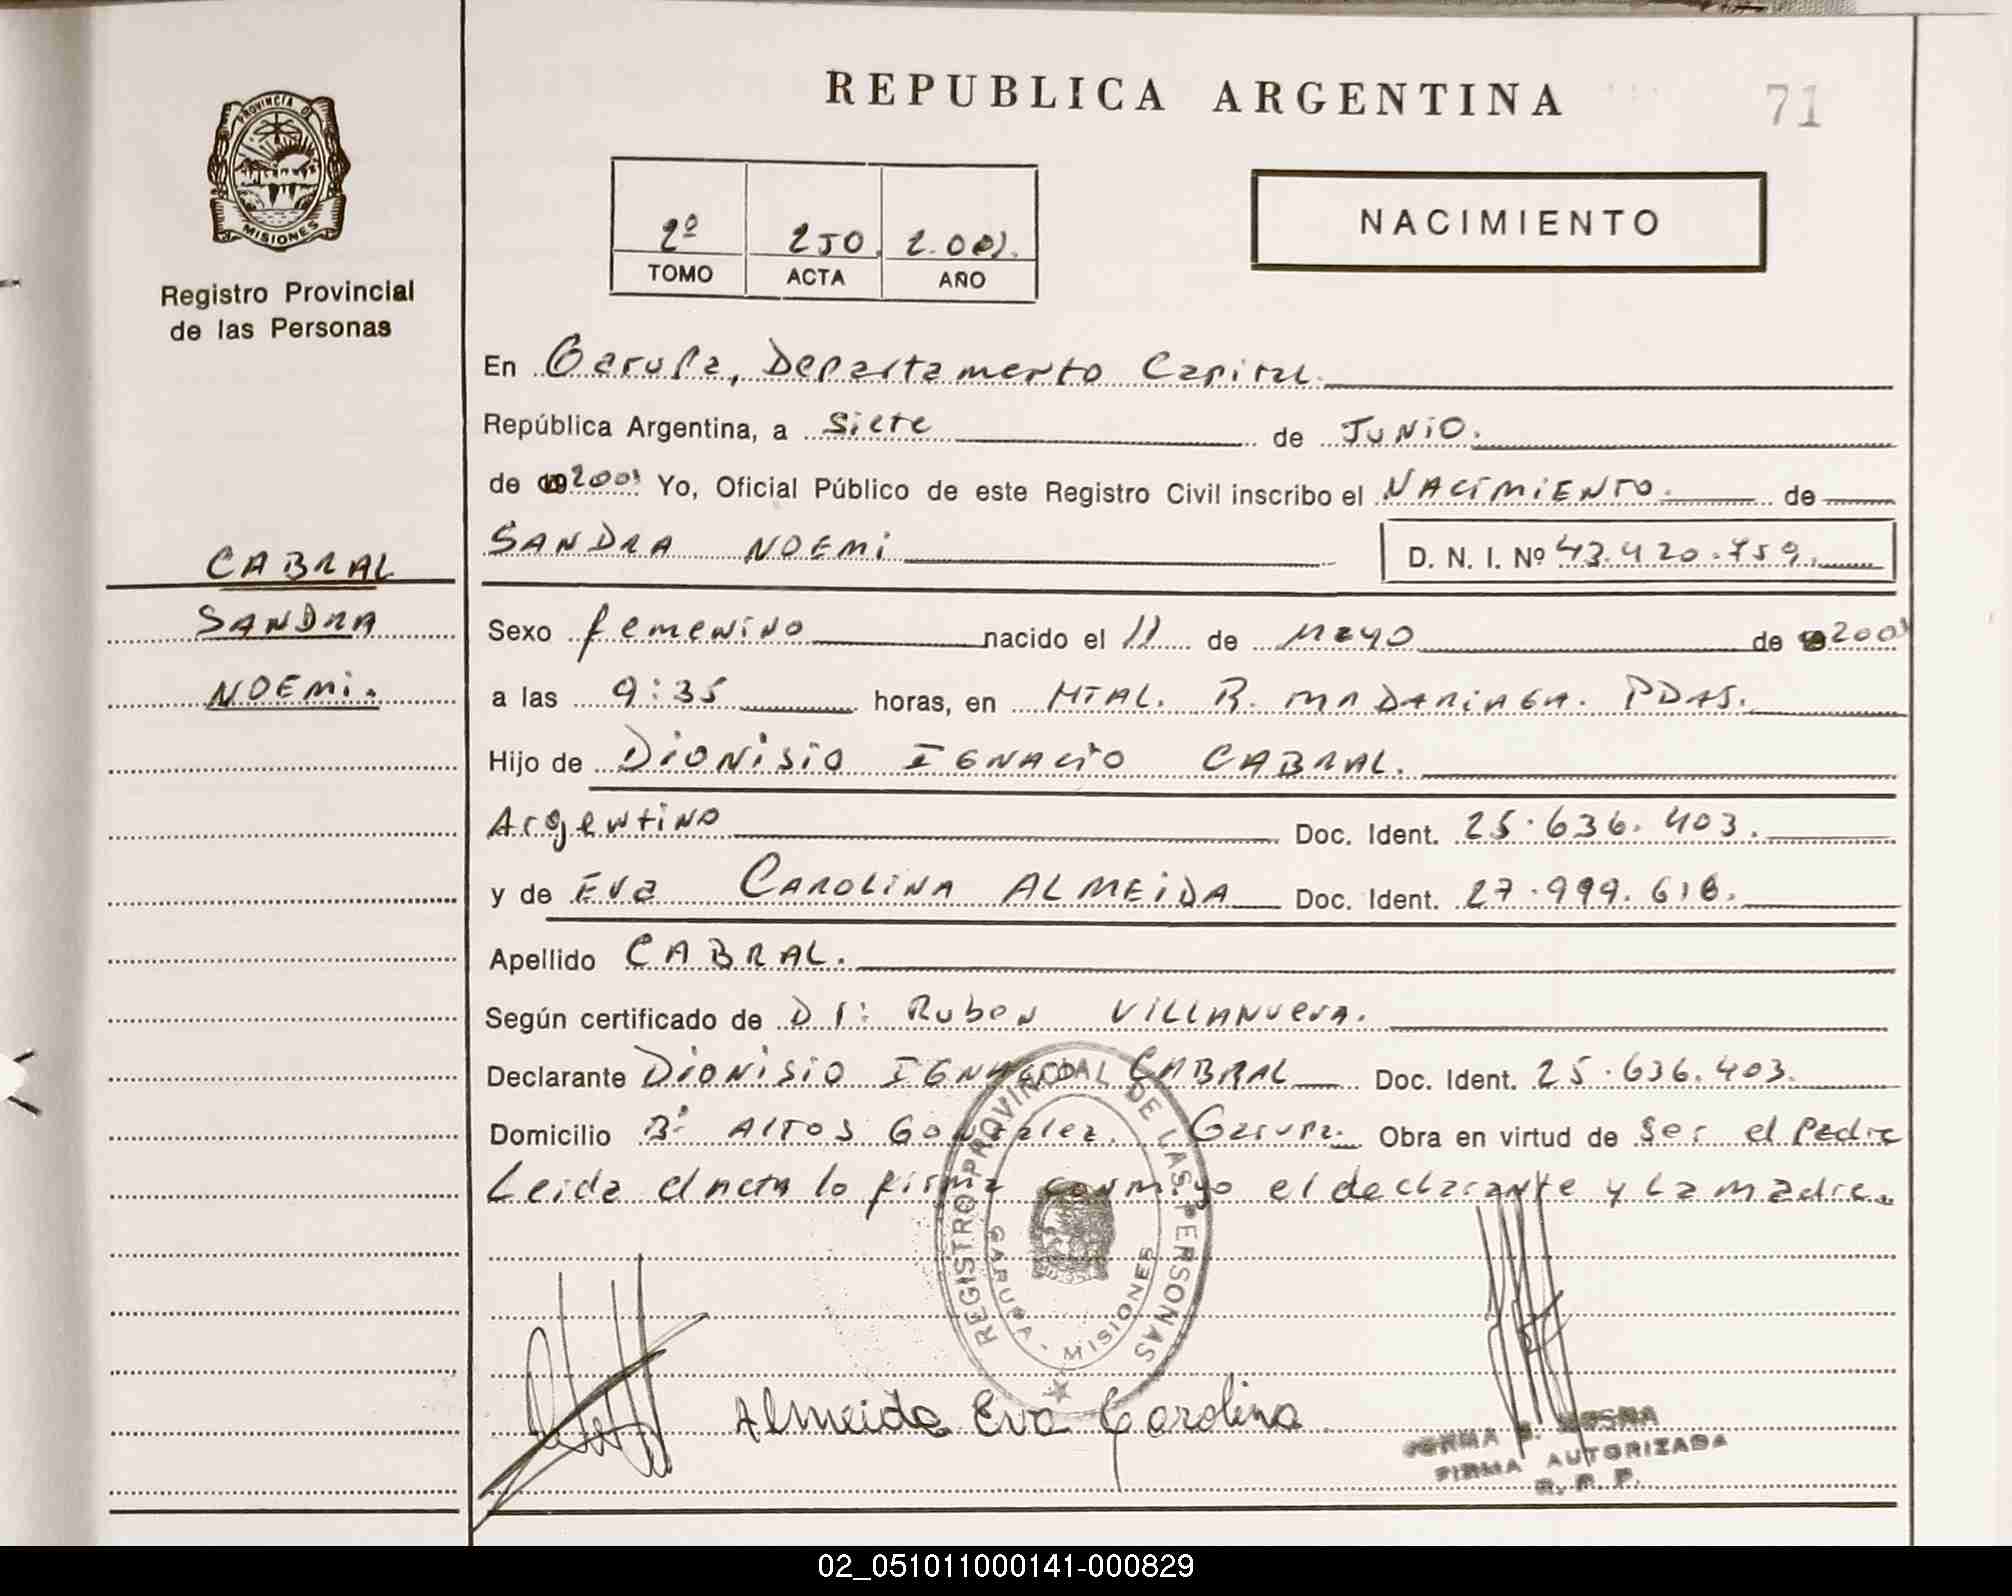 REPUBLICA ARGENTINA
71
PROVINCIA DE
MISIONES
Registro Provincial
de las Personas
2º 250. 2.001.
TOMO ACTA AÑO
NACIMIENTO
En Garupa, Departamento Capital.
República Argentina, a Siete de JUNIO.
de 2001 Yo, Oficial Público de este Registro Civil inscribo el NACIMIENTO. de
CABRAL
SANDRA NOEMI D. N. I. Nº 43.420.759.
SANDRA
Sexo femenino nacido el 11 de Mayo de 2001
NOEMI.
a las 9:35 horas, en HTAL. R. MADARIAGA. PDAS.
Hijo de DIONISIO IGNACIO CABRAL.
Argentino Doc. Ident. 25.636.403.
y de Eva CAROLINA ALMEIDA Doc. Ident. 27.999.616.
Apellido CABRAL.
Según certificado de Dr: Ruben VILLANUEVA.
Declarante DIONISIO IGNACIO CABRAL Doc. Ident. 25.636.403.
Domicilio Bº ALTOS Gonzalez. Garupa. Obra en virtud de Ser el Padre
Leida el acta lo firma conmigo el declarante y La madre.
REGISTRO PROVINCIAL DE LAS PERSONAS
GARUPA - MISIONES
Almeida Eva Carolina
FIRMA AUTORIZADA
R. P. P.
02_051011000141-000829